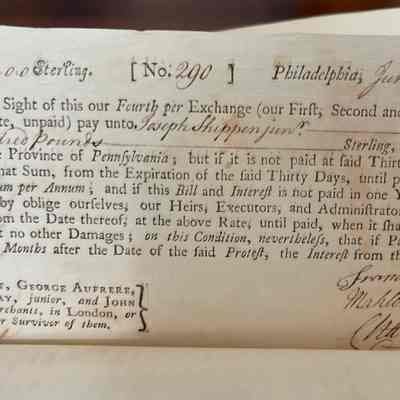 00 Sterling. [No: 290 ] Philadelphia; Jun
Sight of this our Fourth per Exchange (our First, Second and
te, unpaid) pay unto Joseph Shippen junr.
dred Pounds Sterling,
e Province of Pennsylvania; but if it is not paid at said Thirt
hat Sum, from the Expiration of the said Thirty Days, until p
um per Annum; and if this Bill and Interest is not paid in one Y
by oblige ourselves, our Heirs, Executors, and Administrator
om the Date thereof, at the above Rate, until paid, when it sha
t no other Damages; on this Condition, nevertheless, that if P
Months after the Date of the said Protest, the Interest from th
E, GEORGE AUFRERE,
AY, junior, and JOHN
erchants, in London, or
r Survivor of them.